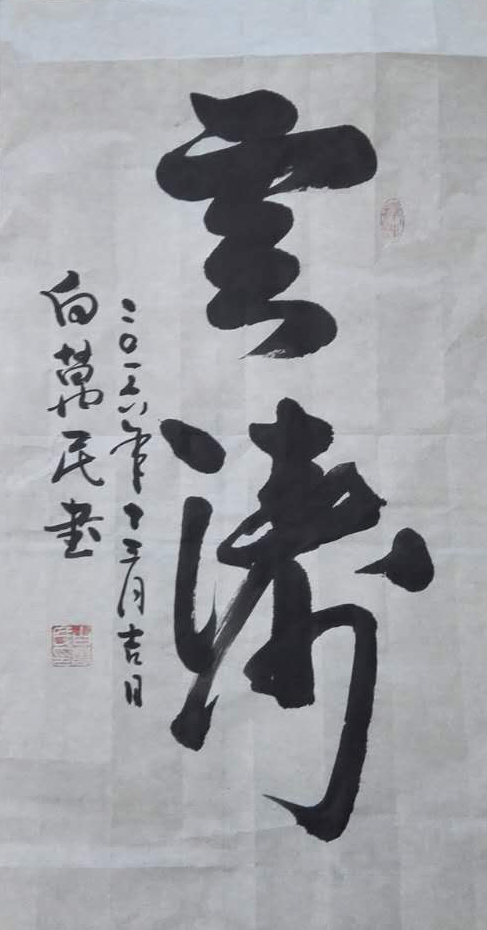 雲濤
二〇一六年十二月吉日
白萬民書